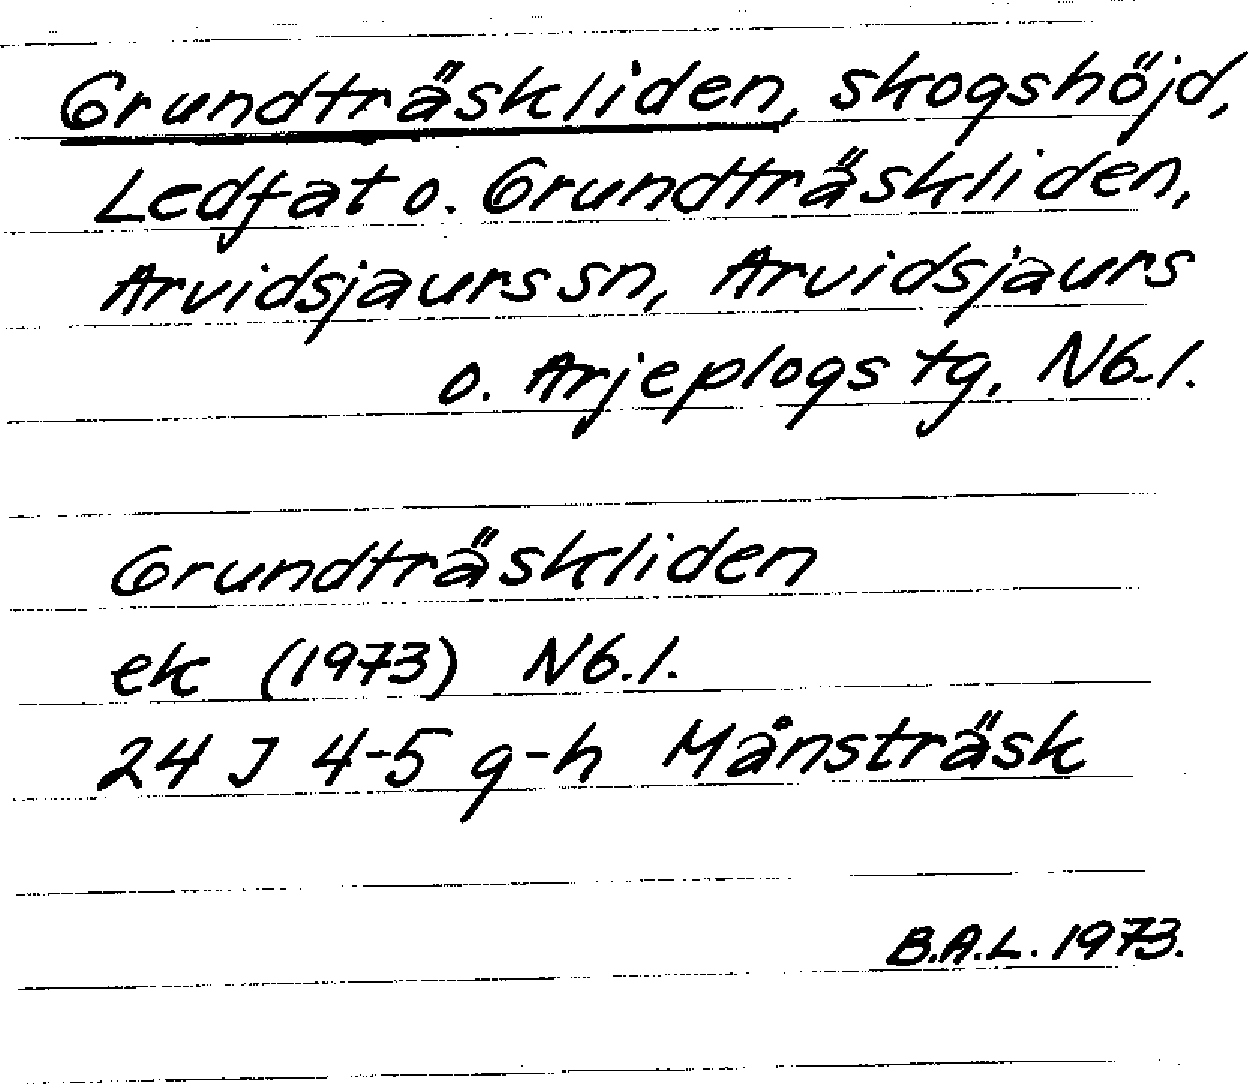 Grundträskliden, skogshöjd,
Ledfat o. Grundträskliden,
Arvidsjaurs sn, Arvidsjaurs
o. Arjeplogs tg, Nb.l.
Grundträskliden
ek (1973) Nb.l.
24 J 4-5 g-h Månsträsk
B.A.L. 1973.